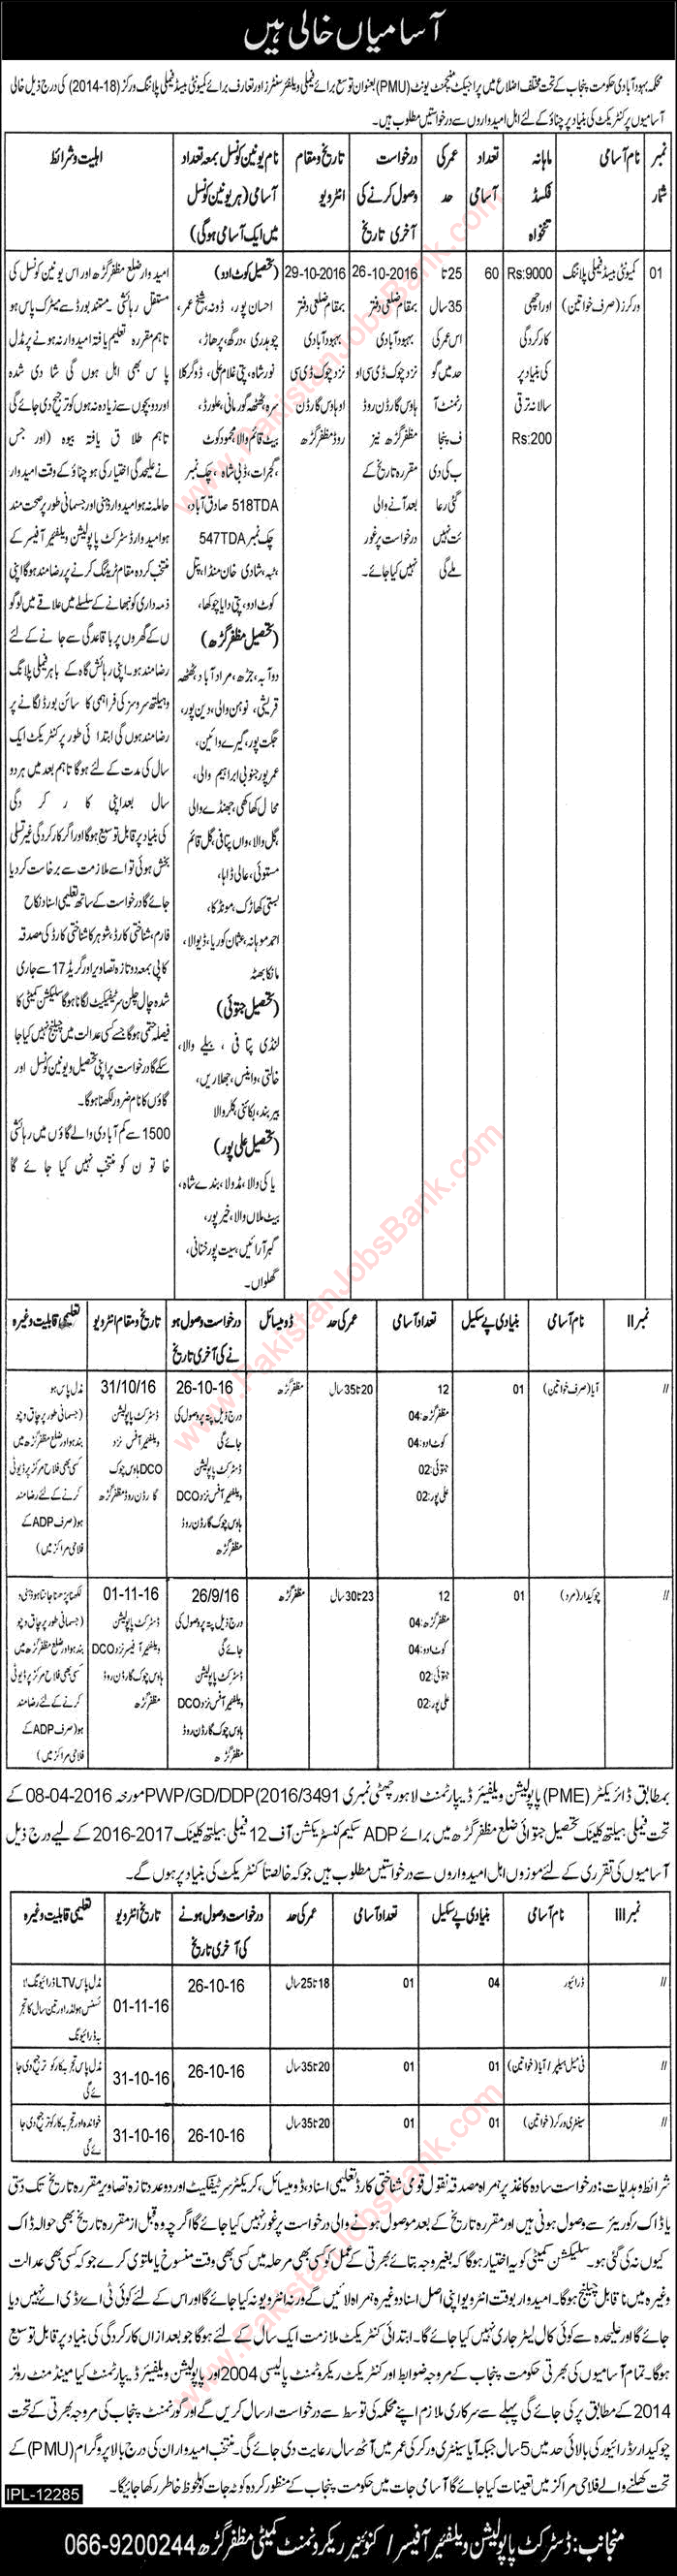 آسامیاں خالی ہیں
محکمہ بہبود آبادی حکومت پنجاب کے تحت مختلف اضلاع میں پراجیکٹ منیجمنٹ یونٹ (PMU) بعنوان توسیع برائے فیملی ویلفیئر سنٹرز اور تعارف برائے کمیونٹی بیسڈ فیملی پلاننگ ورکرز (18-2014) کی درج ذیل خالی
آسامیوں پر کنٹریکٹ کی بنیاد پر چناؤ کے لئے اہل امیدواروں سے درخواستیں مطلوب ہیں۔
نمبر شمار
نام آسامی
ماہانہ فکسڈ تنخواہ
تعداد آسامی
عمر کی حد
درخواست وصول کرنے کی آخری تاریخ
تاریخ و مقام انٹرویو
نام یونین کونسل بمعہ تعداد آسامی (ہر یونین کونسل میں ایک آسامی ہوگی)
اہلیت و شرائط
01
کمیونٹی بیسڈ فیملی پلاننگ ورکرز (صرف خواتین)
Rs:9000 اور اچھی کارکردگی کی بنیاد پر سالانہ ترقی Rs:200
60
25 تا 35 سال اس عمر کی حد میں گورنمنٹ آف پنجاب کی دی گئی رعایت نہیں ملے گی
26-10-2016 بمقام ضلعی دفتر بہبود آبادی نزد چوک ڈی سی او ہاؤس گارڈن روڈ مظفر گڑھ نیز مقررہ تاریخ کے بعد آنے والی درخواست پر غور نہیں کیا جائے۔
29-10-2016 بمقام ضلعی دفتر بہبود آبادی نزد چوک ڈی سی او ہاؤس گارڈن روڈ مظفر گڑھ
(تحصیل کوٹ ادو)
احسان پور، ڈونہ، شیخ عمر،
چوہدری، درگھ، پرھاڑ،
نور شاہ، پتی غلام علی، ڈوگر کلا
سرہ، ٹھٹھہ گورمانی، علورڈ،
بیٹ قائم والا، محمود کوٹ
، گجرات، ڈبی شاہ، چک نمبر
518TDA صادق آباد،
چک نمبر 547TDA
، ٹبہ، شادی خان منڈا، پتل
کوٹ ادو، پتی دایا چوکھا،
(تحصیل مظفر گڑھ)
دو آبہ، جڑھ، مراد آباد، ٹھٹھہ
قریشی، نوہن والی، دین پور،
جگت پور، گیرے دائین،
عمر پور جنوبی، ابراہیم والی،
(تحصیل جتوئی)
لنڈی پتافی، بیلے والا،
(تحصیل علی پور)
امیدوار ضلع مظفر گڑھ اور اس یونین کونسل کی
مستقل رہائشی۔ مستند بورڈ سے میٹرک پاس ہو
تاہم مقررہ تعلیم یافتہ امیدوار نہ ہونے پر مڈل
پاس بھی اہل ہوں گی شادی شدہ
اور دو بچوں سے زیادہ نہ ہوں کو ترجیح دی جائے گی
تاہم طلاق یافتہ بیوہ (اور جس
نے علیحدگی اختیار کی ہو چناؤ کے وقت امیدوار
حاملہ نہ ہو امیدوار ذہنی اور جسمانی طور پر صحت مند
ہو امیدوار ڈسٹرکٹ پاپولیشن ویلفیئر آفیسر کے
منتخب کردہ مقام ٹریننگ کرنے پر رضا مند ہو گا اپنی
ذمہ داری کو نبھانے کے سلسلے میں علاقے میں لوگو
ں کے گھروں پر باقاعدگی سے جانے کے لئے
رضا مند ہو۔ اپنی رہائش گاہ کے باہر فیملی پلاننگ
و ہیلتھ سروسز کی فراہمی کا سائن بورڈ لگانے پر
رضا مند ہوں گی ابتدائی طور پر کنٹریکٹ ایک
سال کی مدت کے لئے ہوگا تاہم بعد میں ہر دو
سال بعد اپنی کارکردگی
کی بنیاد پر قابل توسیع ہوگا اور اگر کارکردگی غیر تسلی
بخش ہوئی تو اسے ملازمت سے برخاست کر دیا
جائے گا درخواست کے ساتھ تعلیمی اسناد نکاح
فارم، شناختی کارڈ، شوہر کا شناختی کارڈ کی مصدقہ
کاپی بمعہ دو تازہ تصاویر اور گریڈ 17 سے جاری
شدہ چال چلن سرٹیفکیٹ لگانا ہوگا سلیکشن کمیٹی کا
فیصلہ حتمی ہوگا جسے کسی عدالت میں چیلنج نہیں کیا جا
سکے گا درخواست پر اپنی تحصیل و یونین کونسل اور
گاؤں کا نام ضرور لکھنا ہوگا۔
1500 سے کم آبادی والے گاؤں میں رہائشی
خاتون کو منتخب نہیں کیا جائے گا
نمبر II
نام آسامی
بنیادی پے سکیل
تعداد آسامی
عمر کی حد
ڈومیسائل
درخواست وصول ہونے کی آخری تاریخ
تاریخ و مقام انٹرویو
تعلیمی قابلیت وغیرہ
//
آیا (صرف خواتین)
01
12 مظفر گڑھ:04 کوٹ ادو:04 جتوئی:02 علی پور:02
20 تا 35 سال
مظفر گڑھ
26-10-16 درج ذیل پتہ پر وصول کی جائے گی ڈسٹرکٹ پاپولیشن ویلفیئر آفس نزد DCO ہاؤس چوک گارڈن روڈ مظفر گڑھ
31/10/16 ڈسٹرکٹ پاپولیشن ویلفیئر آفس نزد DCO ہاؤس چوک گارڈن روڈ مظفر گڑھ
مڈل پاس ہو (جسمانی طور پر چاق و چوبند ہو اور ضلع مظفر گڑھ میں کسی بھی فلاح مرکز پر ڈیوٹی کرنے کے لئے رضا مند ہو (صرف ADP کے فلاحی مراکز میں)
//
چوکیدار (مرد)
01
12 مظفر گڑھ:04 کوٹ ادو:04 جتوئی:02 علی پور:02
23 تا 30 سال
مظفر گڑھ
26/9/16 درج ذیل پتہ پر وصول کی جائے گی ڈسٹرکٹ پاپولیشن ویلفیئر آفس نزد DCO ہاؤس چوک گارڈن روڈ مظفر گڑھ
01-11-16 ڈسٹرکٹ پاپولیشن ویلفیئر آفیسر نزد DCO ہاؤس چوک گارڈن روڈ مظفر گڑھ
لکھنا پڑھنا جانتا ہو ذہنی و (جسمانی طور پر چاق و چوبند ہو اور ضلع مظفر گڑھ میں کسی بھی فلاح مرکز پر ڈیوٹی کرنے کے لئے رضا مند ہو (صرف ADP کے فلاحی مراکز میں)
بمطابق ڈائریکٹر (PME) پاپولیشن ویلفیئر ڈیپارٹمنٹ لاہور چھٹی نمبری PWP/GD/DDP(2016/3491 مورخہ 08-04-2016 کے
تحت فیملی ہیلتھ کلینک تحصیل جتوائی ضلع مظفر گڑھ میں برائے ADP سکیم کنسٹریکشن آف 12 فیملی ہیلتھ کلینک 2016-2017 کے لیے درج ذیل
آسامیوں کی تقرری کے لئے موزوں اہل امیدواروں سے درخواستیں مطلوب ہیں جو کہ خالصتاً کنٹریکٹ کی بنیاد پر ہوں گے۔
نمبر III
نام آسامی
بنیادی پے سکیل
تعداد آسامی
عمر کی حد
درخواست وصول ہونے کی آخری تاریخ
تاریخ انٹرویو
تعلیمی قابلیت وغیرہ
//
ڈرائیور
04
01
18 تا 25 سال
26-10-16
01-11-16
مڈل پاس LTV ڈرائیونگ لائسنس ہولڈر اور تین سال کا تجربہ ڈرائیونگ
//
فی میل ہیلپر / آیا (خواتین)
01
01
20 تا 35 سال
26-10-16
31-10-16
مڈل پاس تجربہ کار کو ترجیح دی جائے گی
//
سینٹری ورکر (خواتین)
01
01
20 تا 35 سال
26-10-16
31-10-16
خواندہ اور تجربہ کار کو ترجیح دی جائے گی
شرائط و ہدایات: درخواست سادہ کاغذ پر ہمراہ مصدقہ نقول قومی شناختی کارڈ تعلیمی اسناد، ڈومیسائل، کریکٹر سرٹیفکیٹ اور دو عدد تازہ تصاویر مقررہ تاریخ تک دستی
یا ڈاک/کوریئر سے وصول ہونی ہیں اور مقررہ تاریخ کے بعد موصول ہونے والی درخواست پر غور نہیں کیا جائے گا اگرچہ وہ قبل از مقررہ تاریخ بھی حوالہ ڈاک
کیوں نہ کی گئی ہو۔ سلیکشن کمیٹی کو یہ اختیار ہو گا کہ بغیر وجہ بتائے بھرتی کے عمل کو کسی بھی مرحلہ میں کسی بھی وقت منسوخ یا ملتوی کرے جو کہ کسی بھی عدالت
وغیرہ میں ناقابل چیلنج ہوگا۔ امیدوار بوقت انٹرویو اپنی اصل اسناد وغیرہ ہمراہ لائیں گے ورنہ انٹرویو نہ کیا جائے گا اور اس کے لئے کوئی ٹی اے/ڈی اے نہیں دیا
جائے گا اور علیحدہ سے کوئی کال لیٹر جاری نہیں کیا جائے گا۔ ابتدائی کنٹریکٹ ملازمت ایک سال کے لئے ہوگا جو بعد ازاں کارکردگی کی بنیاد پر قابل توسیع
ہوگا۔ تمام آسامیوں کی بھرتی حکومت پنجاب کے مروجہ ضوابط اور کنٹریکٹ ریکروٹمنٹ پالیسی 2004 اور پاپولیشن ویلفیئر ڈیپارٹمنٹ کیا مینڈمنٹ رولز
2014 کے مطابق پر کی جائے گی پہلے سے سرکاری ملازم اپنے محکمہ کی توسط سے درخواست ارسال کریں گے اور گورنمنٹ پنجاب کی مروجہ بھرتی کے تحت
چوکیدار/ڈرائیور کی بالائی حد میں 5 سال جبکہ آیا/سینٹری ورکر کی عمر میں آٹھ سال رعایت دی جائے گی۔ منتخب امیدواران کی درج بالا پروگرام (PMU) کے
تحت کھلنے والے فلاحی مراکز میں تعینات کیا جائے گا آسامی جات میں حکومت پنجاب کے منظور کردہ کوٹہ جات کو ملحوظ خاطر رکھا جائیگا۔
IPL-12285
منجانب: ڈسٹرکٹ پاپولیشن ویلفیئر آفیسر / کنوینر ریکروٹمنٹ کمیٹی مظفر گڑھ 066-9200244
www.PakistanJobsBank.com
www.PakistanJobsBank.com
www.PakistanJobsBank.com